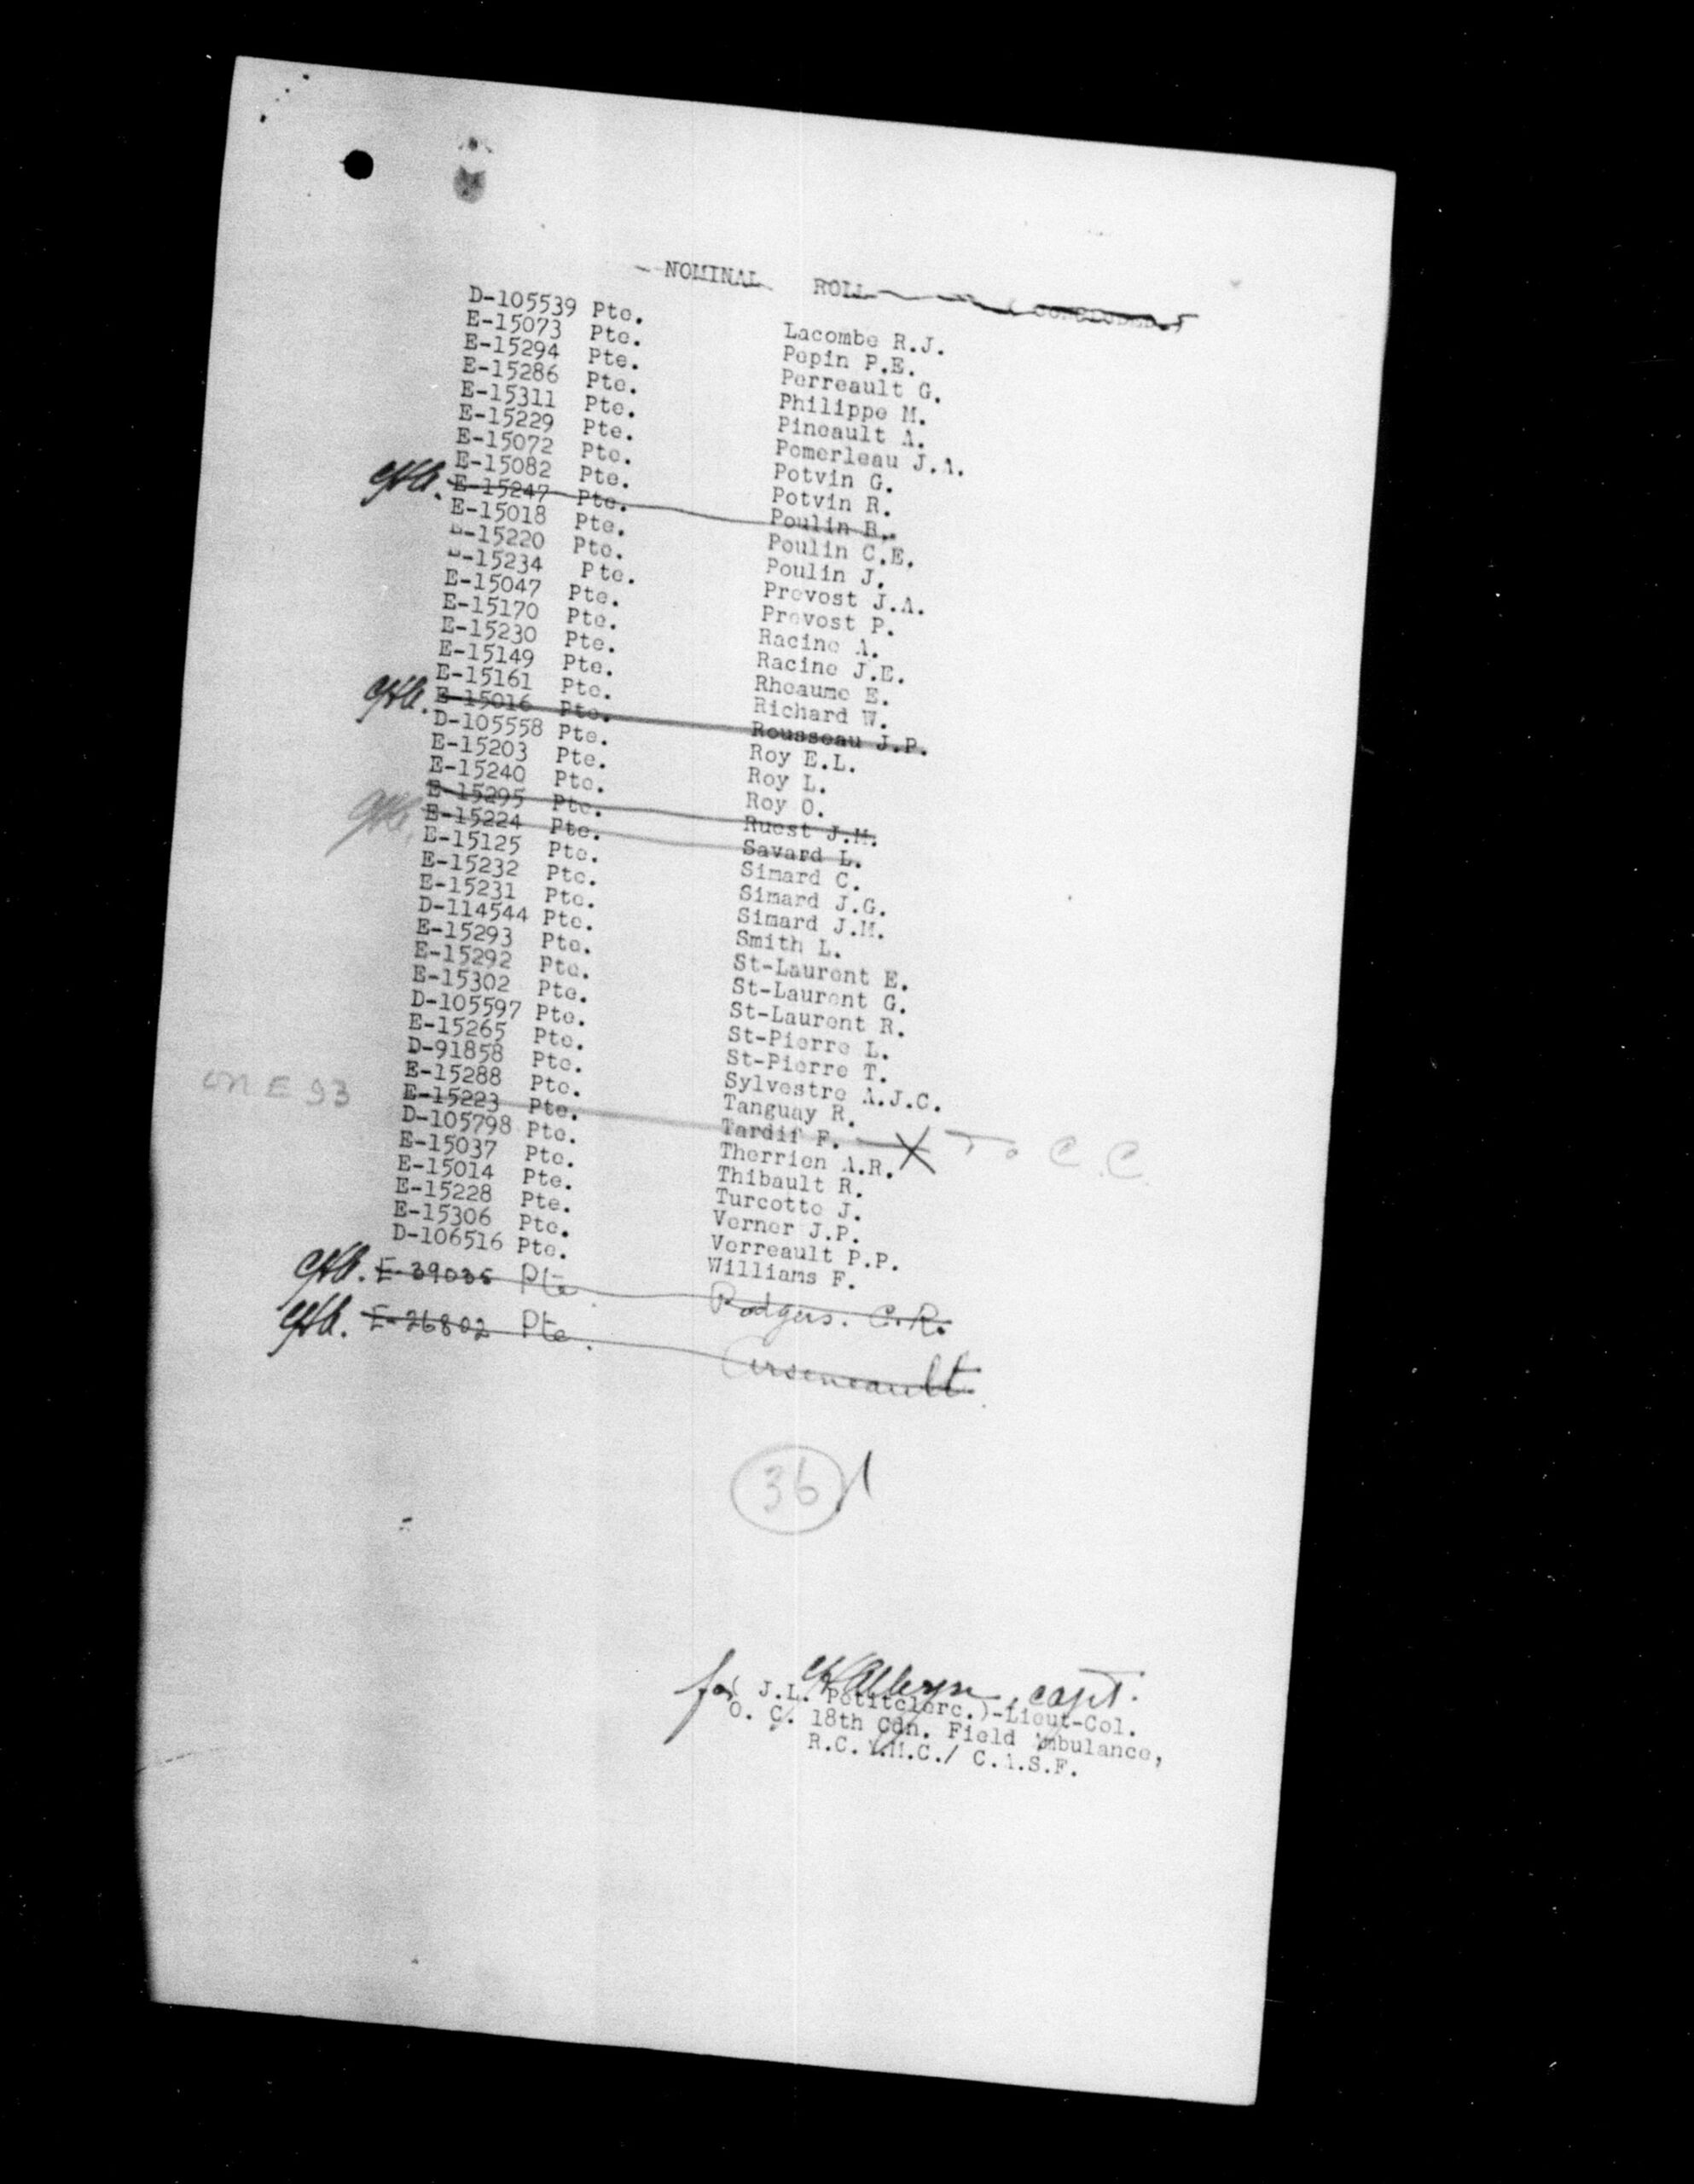 NOMINAL ROLL (CONCLUDED.)
D-105539 Pte. Lacombe R.J.
E-15073 Pte. Pepin P.E.
E-15294 Pte. Perreault G.
E-15286 Pte. Philippe M.
E-15311 Pte. Pineault A.
E-15229 Pte. Pomerleau J.A.
E-15072 Pte. Potvin G.
E-15082 Pte. Potvin R.
E-15247 Pte. Poulin B.
E-15018 Pte. Poulin C.E.
E-15220 Pte. Poulin J.
E-15234 Pte. Prevost J.A.
E-15047 Pte. Prevost P.
E-15170 Pte. Racine A.
E-15230 Pte. Racine J.E.
E-15149 Pte. Rheaume E.
E-15161 Pte. Richard W.
E-15016 Pte. Rousseau J.P.
D-105558 Pte. Roy E.L.
E-15203 Pte. Roy L.
E-15240 Pte. Roy O.
E-15295 Pte. Ruest J.M.
E-15224 Pte. Savard L.
E-15125 Pte. Simard C.
E-15232 Pte. Simard J.G.
E-15231 Pte. Simard J.M.
D-114544 Pte. Smith L.
E-15293 Pte. St-Laurent E.
E-15292 Pte. St-Laurent G.
E-15302 Pte. St-Laurent R.
D-105597 Pte. St-Pierre L.
E-15265 Pte. St-Pierre T.
D-91858 Pte. Sylvestre A.J.C.
E-15288 Pte. Tanguay R.
on E 93 E-15223 Pte. Tardif F. X To C.C.
D-105798 Pte. Therrien A.R.
E-15037 Pte. Thibault R.
E-15014 Pte. Turcotte J.
E-15228 Pte. Verner J.P.
E-15306 Pte. Verreault P.P.
D-106516 Pte. Williams F.
E-39035 Pte. Rodgers. C.R.
E-26802 Pte. Arseneault
36
for capt.
J.L. Petitclerc.)-Lieut-Col.
O. C. 18th Cdn. Field Ambulance,
R.C.A.M.C./ C.A.S.F.